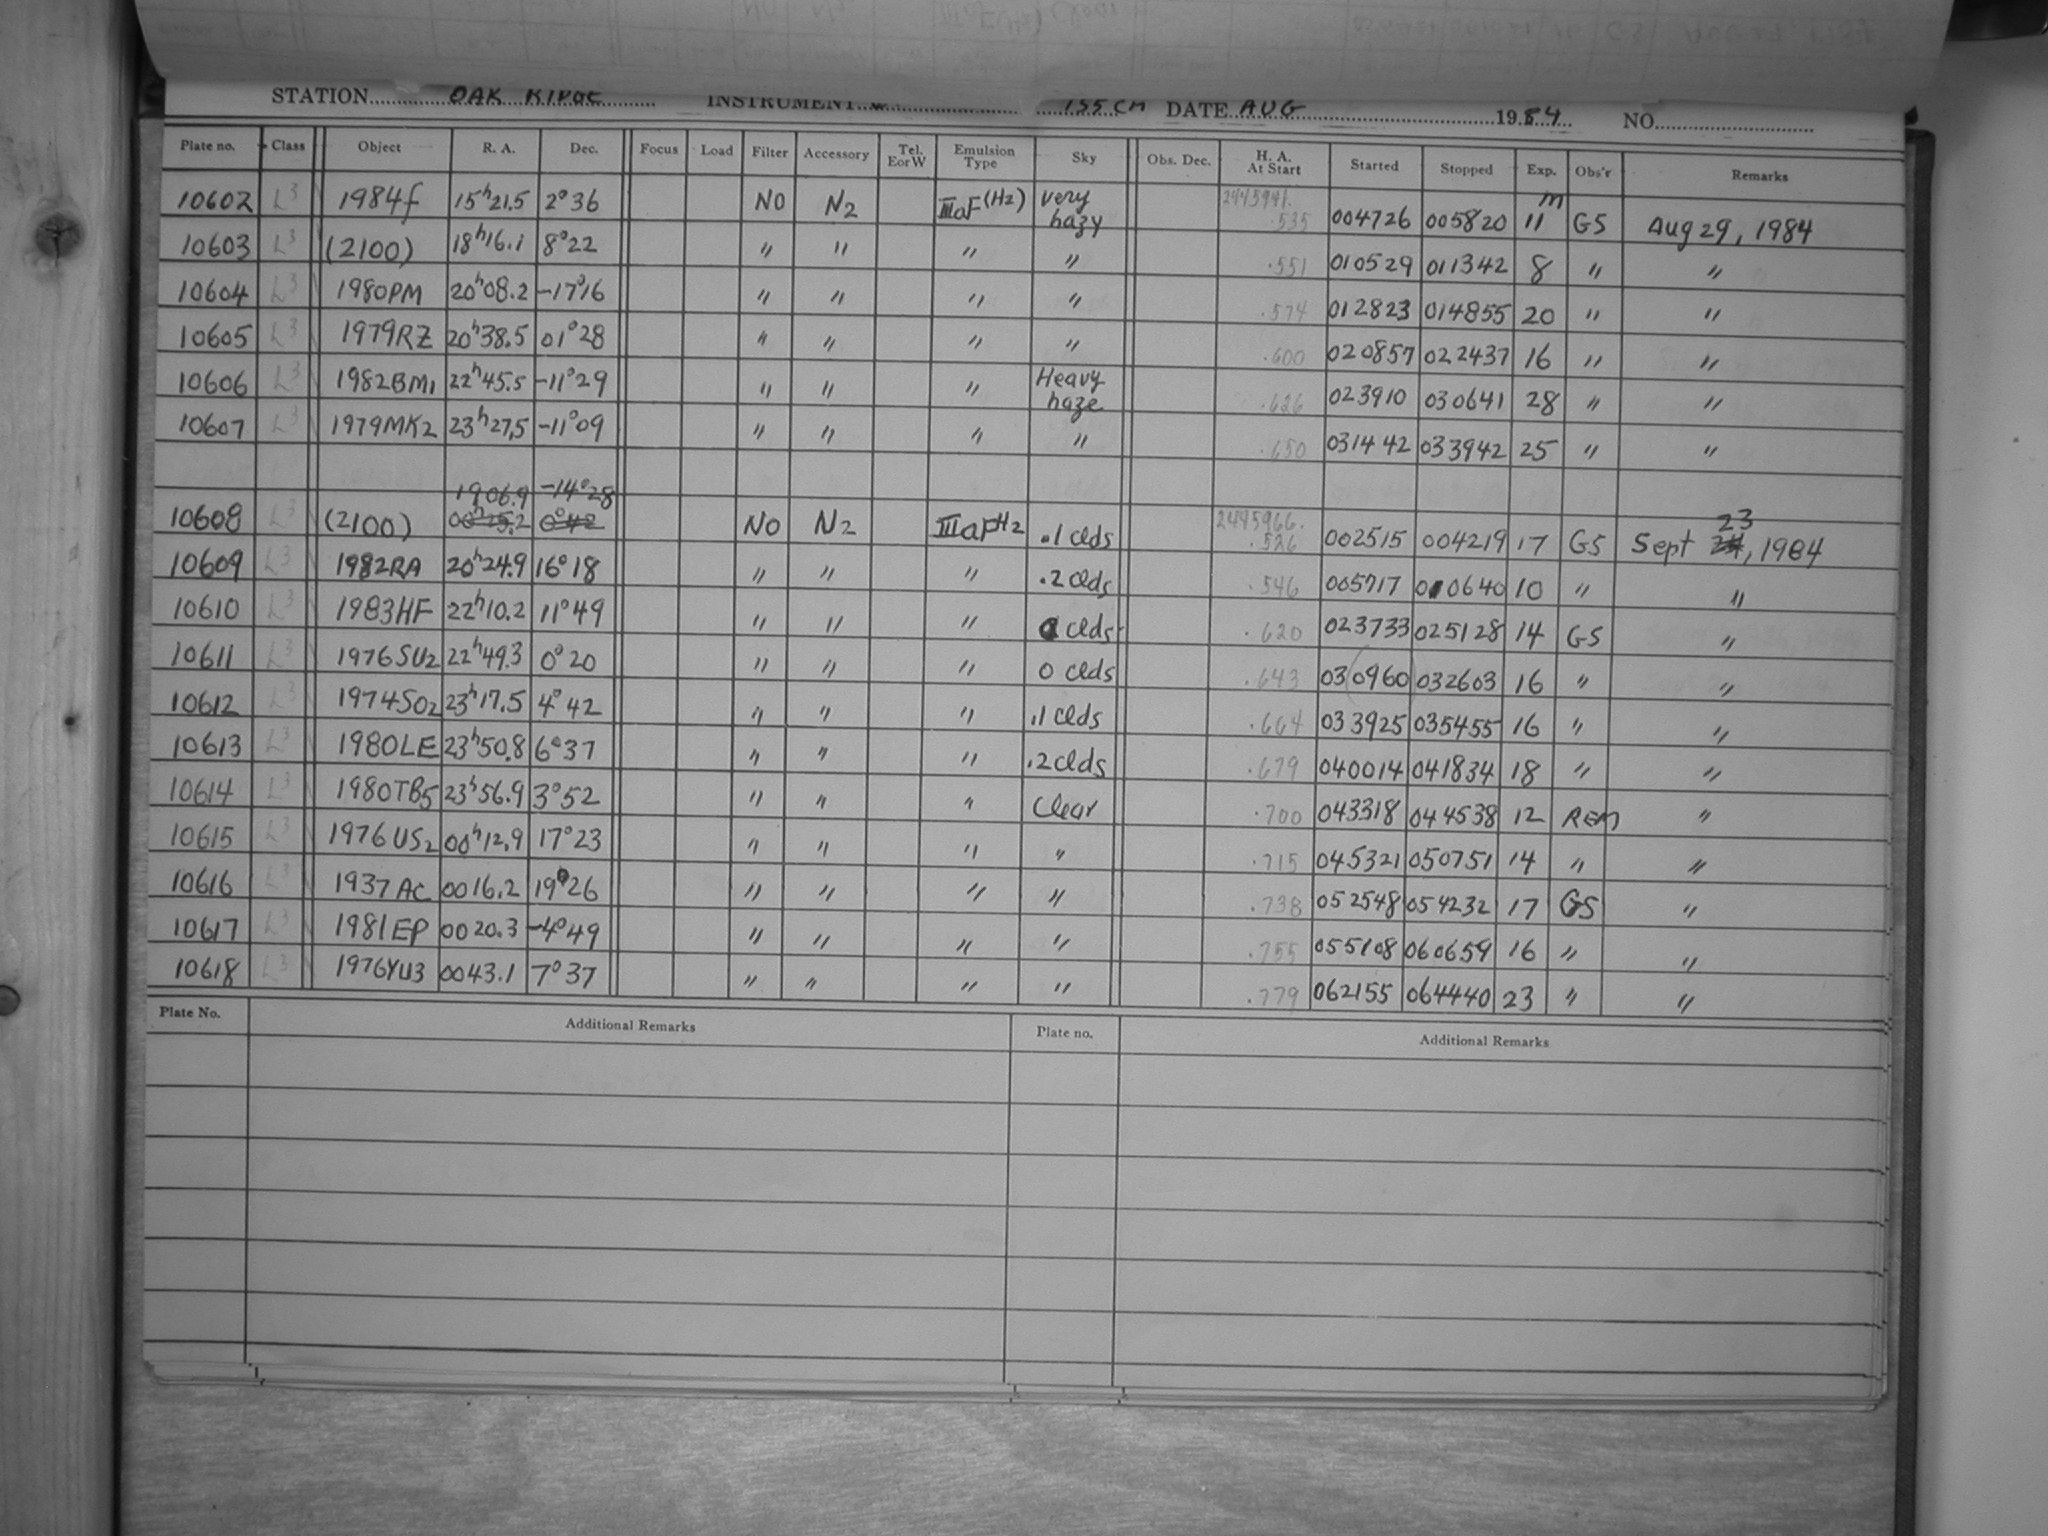 STATION OAK RIDGE INSTRUMENT 155 CM DATE AUG 1984 NO.
Plate no. Class Object R. A. Dec. Focus Load Filter Accessory Tel. E or W Emulsion Type Sky Obs. Dec. H. A. At Start Started Stopped Exp. Obs'r Remarks
10602 L3 1984f 15h21.5 2°36 NO N2 IIIaF(H2) very hazy 2445941. .535 004726 005820 11m GS Aug 29, 1984
10603 L3 (2100) 18h16.1 8°22 " " " " .551 010529 011342 8 " "
10604 L3 1980PM 20h08.2 -17°16 " " " " .574 012823 014855 20 " "
10605 L3 1979RZ 20h38.5 01°28 " " " " .600 020857 022437 16 " "
10606 L3 1982BM1 22h45.5 -11°29 " " " Heavy haze .626 023910 030641 28 " "
10607 L3 1979MK2 23h27.5 -11°09 " " " " .650 031442 033942 25 " "
1906.9 -14°28
10608 L3 (2100) 00h25.2 0°42 NO N2 IIIaFH2 .1 clds 2445966. .526 002515 004219 17 GS Sept 23, 1984
10609 L3 1982RA 20h24.9 16°18 " " " .2 clds .546 005717 010640 10 " "
10610 L3 1983HF 22h10.2 11°49 " " " 0 clds .620 023733 025128 14 GS "
10611 L3 1976SU2 22h49.3 0°20 " " " 0 clds .643 030960 032603 16 " "
10612 L3 1974SO2 23h17.5 4°42 " " " .1 clds .664 033925 035455 16 " "
10613 L3 1980LE 23h50.8 6°37 " " " .2 clds .679 040014 041834 18 " "
10614 L3 1980TB5 23h56.9 3°52 " " " Clear .700 043318 044538 12 REM "
10615 L3 1976US2 00h12.9 17°23 " " " " .715 045321 050751 14 " "
10616 L3 1937AC 0016.2 19°26 " " " " .738 052548 054232 17 GS "
10617 L3 1981EP 0020.3 -4°49 " " " " .755 055108 060659 16 " "
10618 L3 1976YU3 0043.1 7°37 " " " " .779 062155 064440 23 " "
Plate No. Additional Remarks Plate no. Additional Remarks